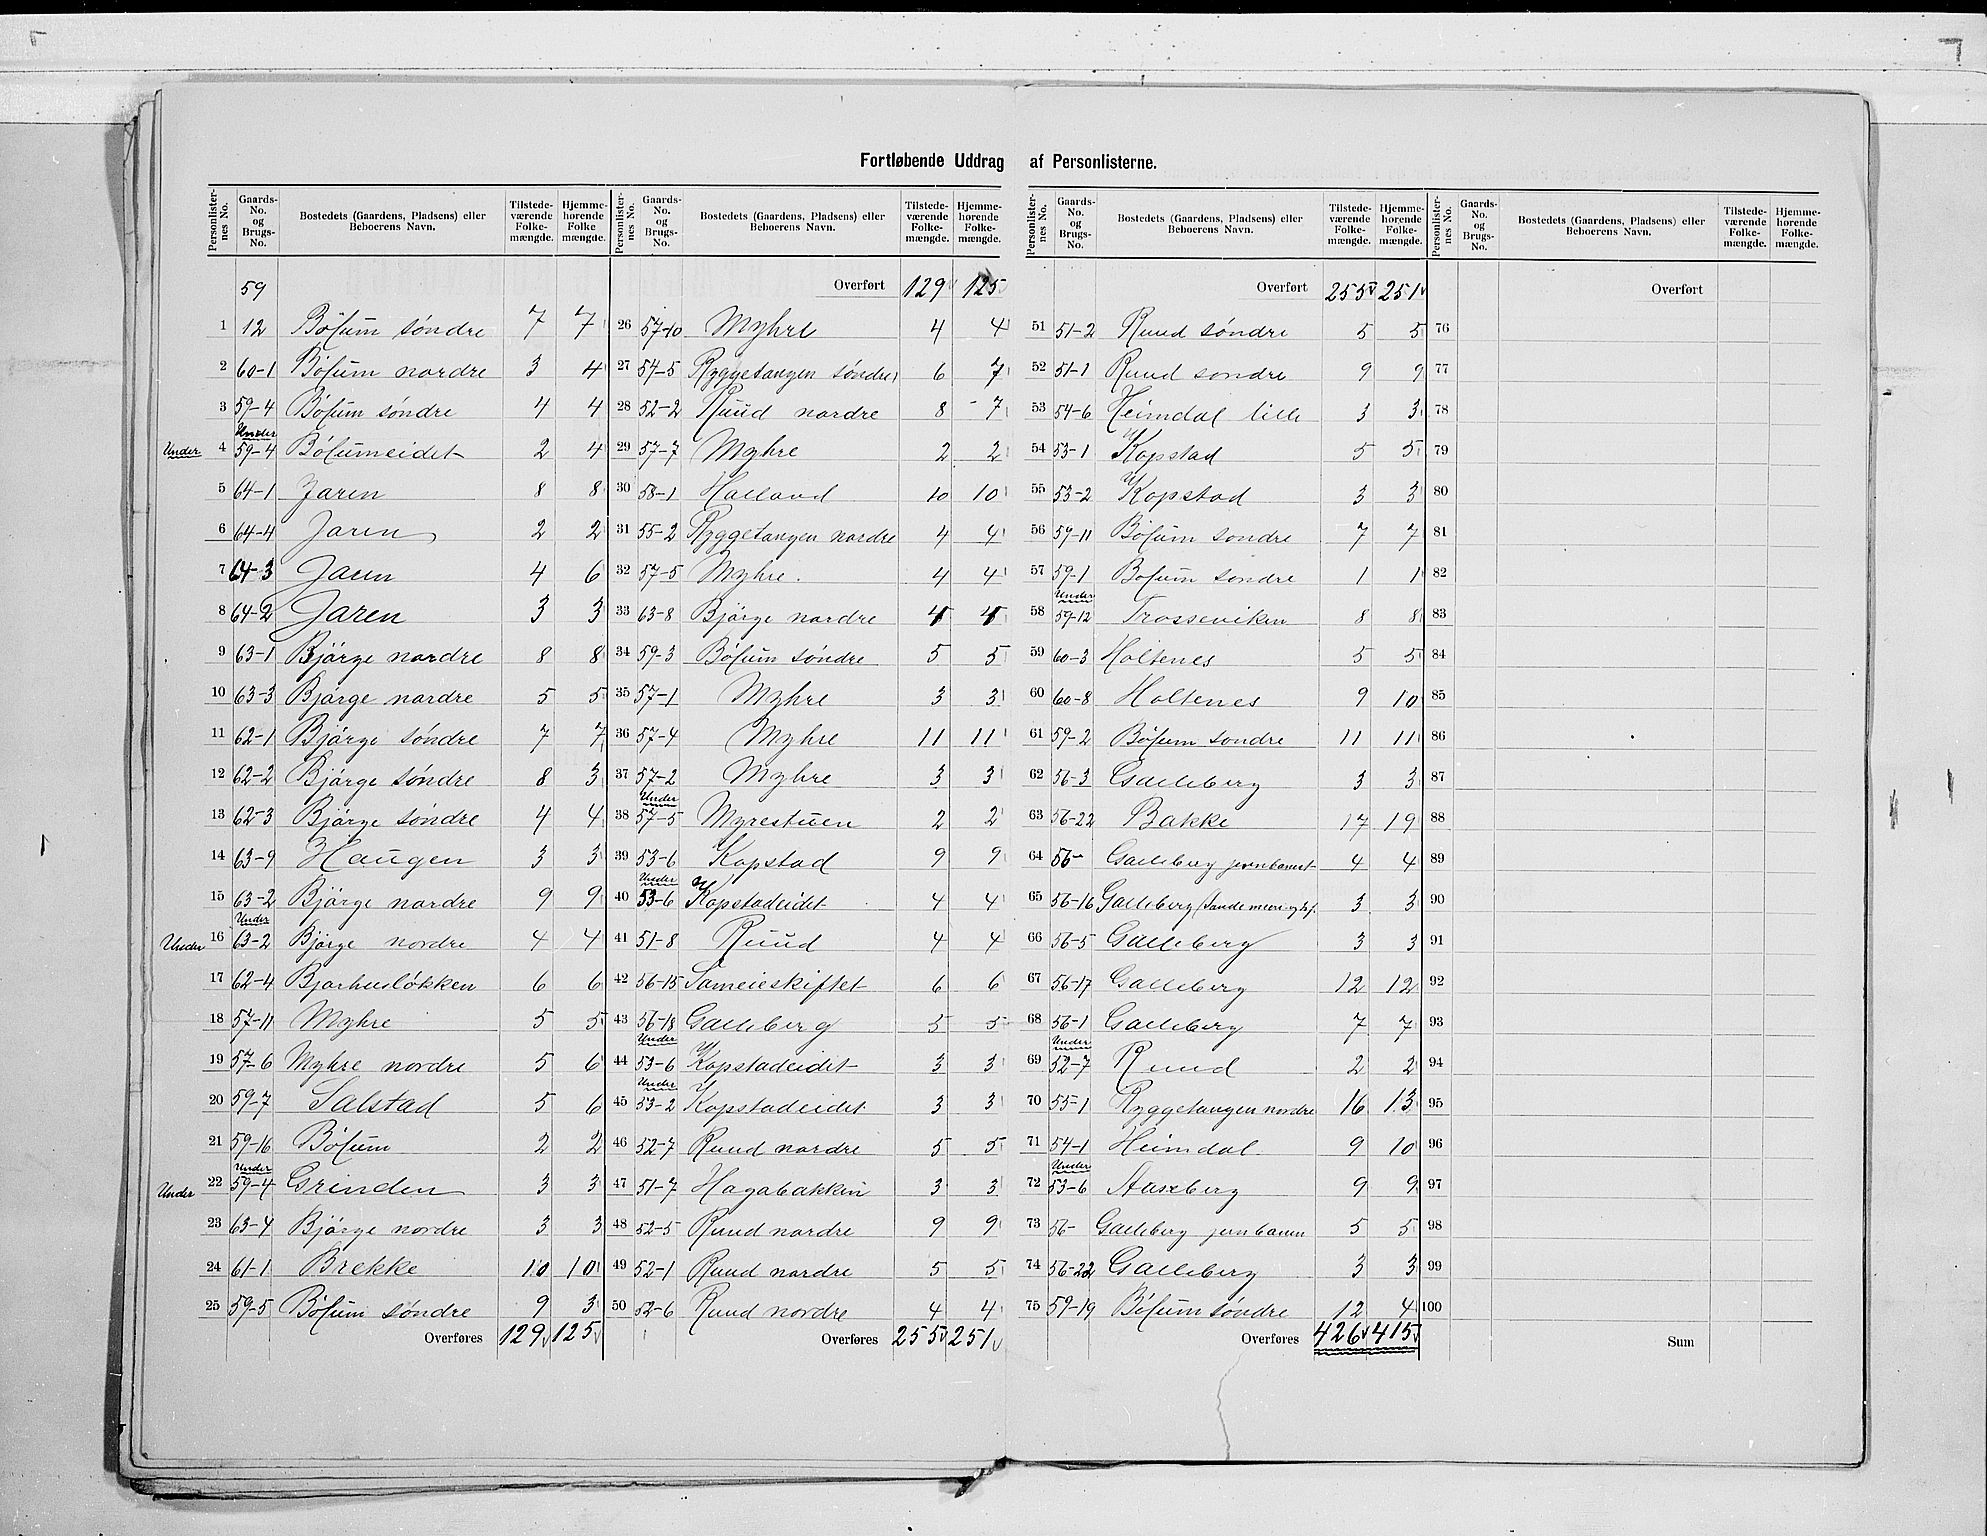 Fortløbende Uddrag af Personlisterne.
Personlister-nes No. Gaards-No. og Brugs-No. Bostedets (Gaardens, Pladsens) eller Beboerens Navn. Tilstede-værende Folke-mængde. Hjemme-hørende Folke mængde.
59
1 12 Bösum söndre 7 7
2 60-1 Bösum nordre 3 4
3 59-4 Bösum söndre 4 4
Under 4 Under 59-4 Bösumeidet 2 4
5 64-1 Jaren 8 8
6 64-4 Jaren 2 2
7 64-3 Jaren 4 6
8 64-2 Jaren 3 3
9 63-1 Bjørge nordre 8 8
10 63-3 Bjørge nordre 5 5
11 62-1 Bjørge söndre 7 7
12 62-2 Bjørge söndre 8 3
13 62-3 Bjørge söndre 4 4
14 63-9 Haugen 3 3
15 63-2 Bjørge nordre 9 9
Under 16 Under 63-2 Bjørge nordre 4 4
17 62-4 Bjørhusløkken 6 6
18 57-11 Myhre 5 5
19 57-6 Myhre nordre 5 6
20 59-7 Salstad 5 6
21 59-16 Bösum 2 2
Under 22 Under 59-4 Grinden 3 3
23 63-4 Bjørge nordre 3 3
24 61-1 Brekke 10 10
25 59-5 Bösum söndre 9 3
Overføres 129 125
Personlister-nes No. Gaards-No. og Brugs-No. Bostedets (Gaardens, Pladsens) eller Beboerens Navn. Tilstede-værende Folke-mængde. Hjemme-hørende Folke-mængde.
Overført 129 125
26 57-10 Myhre 4 4
27 54-5 Ryggetangen söndre 6 7
28 52-2 Ruud nordre 8 7
29 57-7 Myhre 2 2
30 58-1 Holland 10 10
31 55-2 Ryggetangen nordre 4 4
32 57-5 Myhre. 4 4
33 63-8 Bjørge nordre 4 4
34 59-3 Bösum söndre 5 5
35 57-1 Myhre 3 3
36 57-4 Myhre 11 11
37 57-2 Myhre 3 3
38 Under 57-5 Myrestuen 2 2
39 53-6 Kopstad 9 9
40 Under 53-6 Kopstadeidet 4 4
41 51-8 Ruud 4 4
42 56-15 Sameieskiftet 6 6
43 56-18 Galleberg 5 5
44 Under 53-6 Kopstadeidet 3 3
45 Under 53-2 Kopstadeidet 3 3
46 52-7 Ruud nordre 5 5
47 51-7 Hagabakken 3 3
48 52-5 Ruud nordre 9 9
49 52-1 Ruud nordre 5 5
50 52-6 Ruud nordre 4 4
Overføres 255 251
Personlister-nes No. Gaards-No. og Brugs-No. Bostedets (Gaardens, Pladsens) eller Beboerens Navn. Tilstede-værende Folke-mængde. Hjemme-hørende Folke-mængde.
Overført 255 251
51 51-2 Ruud söndre 5 5
52 51-1 Ruud sondre 9 9
53 54-6 Heimdal lille 3 3
54 53-1 Kopstad 5 5
55 53-2 Kopstad 3 3
56 59-11 Bösum sondre 7 7
57 59-1 Bosum sondre 1 1
58 Under 59-12 Trosseviken 8 8
59 60-3 Holtenes 5 5
60 60-8 Holtenes 9 10
61 59-2 Bösum sondre 11 11
62 56-3 Galleberg 3 3
63 56-22 Bakke 17 19
64 56- Galleberg jernbanest 4 4
65 56-16 Galleberg (Sande meieri 3 3
66 56-5 Galleberg 3 3
67 56-17 Galleberg 12 12
68 56-1 Galleberg 7 7
69 Under 52-7 Ruud 2 2
70 55-1 Ryggetangen nordre 16 13
71 54-1 Heimdal 9 10
72 Under 53-6 Aaseberg 9 9
73 56- Galleberg jernbanen 5 5
74 56-22 Galleberg 3 3
75 59-19 Bösum söndre 12 4
Overføres 426 415
Personlister-nes No. Gaards-No. og Brugs-No. Bostedets (Gaardens, Pladsens) eller Beboerens Navn. Tilstede-værende Folke-mængde. Hjemme-hørende Folke-mængde.
Overført
76
77
78
79
80
81
82
83
84
85
86
87
88
89
90
91
92
93
94
95
96
97
98
99
100
Sum